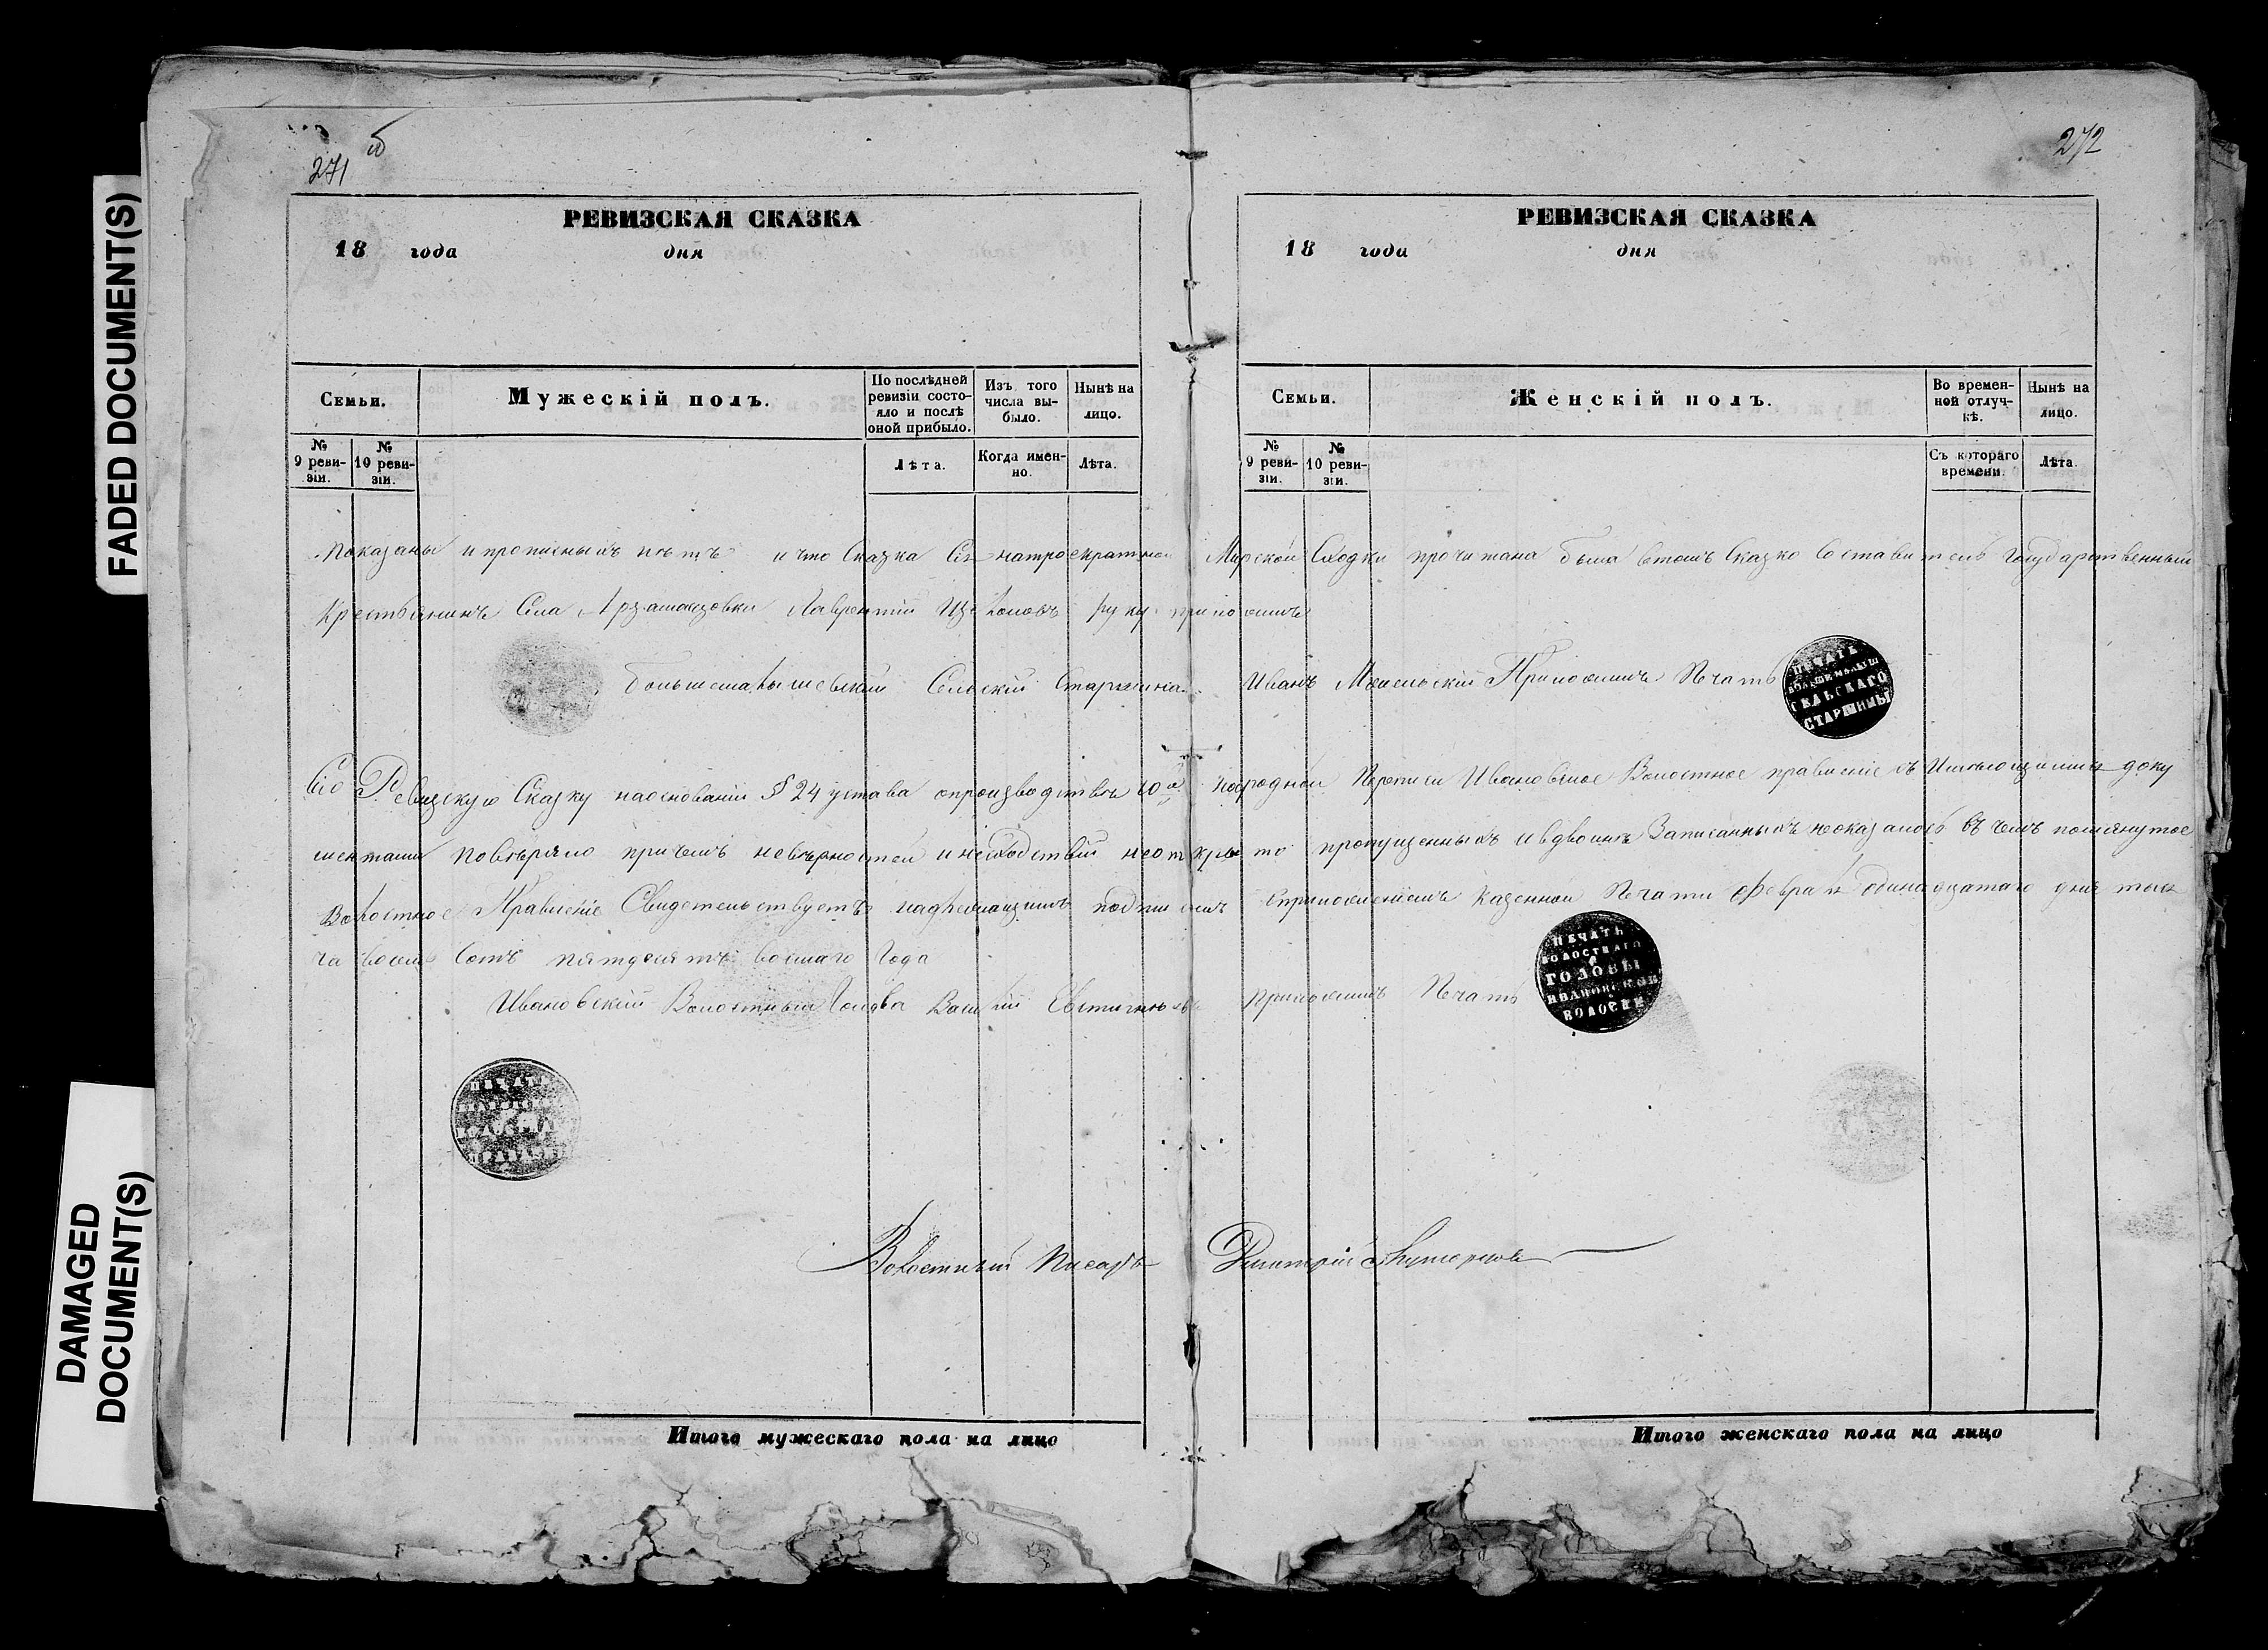 FADED DOCUMENT(S)
DAMAGED
DOCUMENT(S)
271
РЕВИЗСКАЯ СКАЗКА
18 года дня
Семьи.
Мужескій полъ.
По послѣдней
ревизіи состо-
яло и послѣ
оной прибыло.
Изъ того
числа вы-
было.
Нынѣ на
лицо.
№
9 реви-
зіи.
№
10 реви-
зіи.
Лѣта.
Когда имен-
но.
Лѣта.
272
РЕВИЗСКАЯ СКАЗКА
18 года дня
Семьи.
Женскій полъ.
Во времен-
ной отлуч-
кѣ.
Нынѣ на
лицо.
№
9 реви-
зіи.
№
10 реви-
зіи.
Съ котораго
времени.
Лѣта.
Показаны и прописныхъ нѣтъ и что Сказка Сія на троекратной Мирской Сходки прочитана была втомъ Сказко Составитель Государственный
Крестьянинъ Села Арзамасцовки Лаврентій руку приложилъ
Сельскій Старшина Иванъ Приложилъ Печать
ПЕЧАТЬ
СЕЛЬСКАГО
СТАРШИНЫ
Сію Ревизскую Сказку наоснованіи § 24 устава опроизводствѣ 10й народной Переписи Ивановское Волостное правленіе съ Имѣющимися доку
ментами повѣряло причемъ невѣрностей и несходствій неоткрыто пропущенныхъ и вдвойнѣ Записанныхъ неоказалось въ чемъ помянутое
Волостное Правленіе Свидетельствуетъ надлежащимъ подписомъ сприложеніемъ Казенной Печати Февраля Одинадцатаго дня тыся
ча восемь Сотъ пятдесятъ восмаго Года
Ивановскій Волостный Голова Василій приложилъ Печать
ПЕЧАТЬ
ВОЛОСТНАГО
ГОЛОВЫ
ИВАНОВСКОЙ
ВОЛОСТИ
ПЕЧАТЬ
Волостный Писарь Дмитрій
Итого мужескаго пола на лицо
Итого женскаго пола на лицо